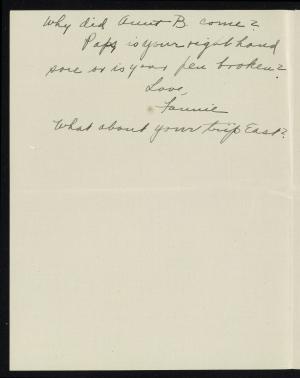 Why did Aunt B. come?
Papa is your right hand
sore or is your pen broken?
Love,
Fannie
What about your trip East?